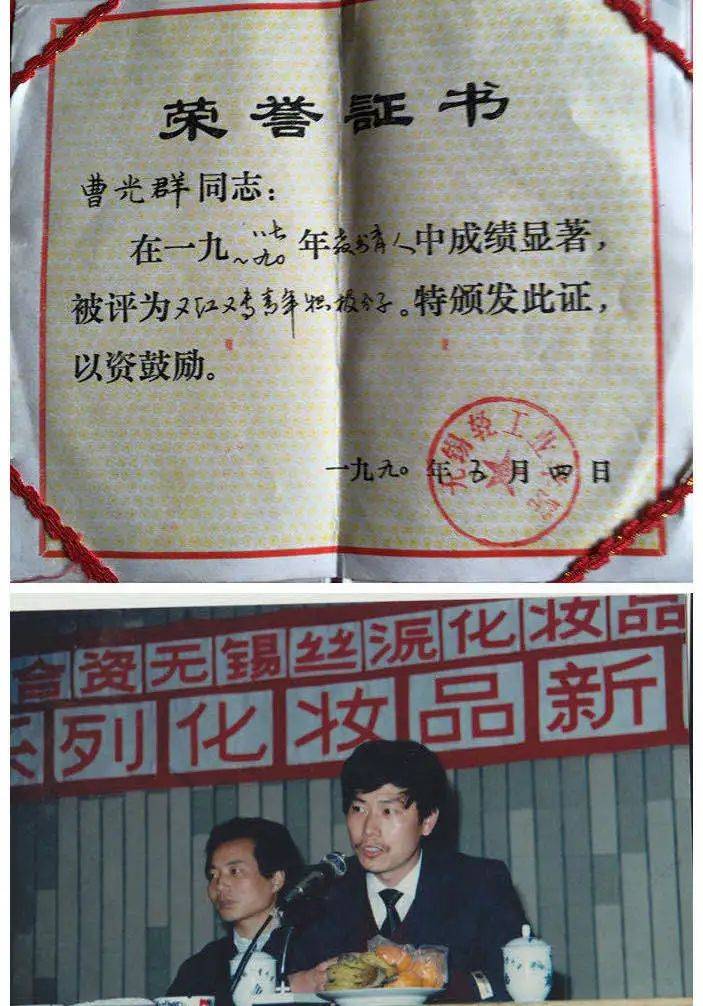 荣誉証书
曹光群同志：
在一九八七～九〇年教书育人中成绩显著，
被评为又红又专青年积极分子。特颁发此证，
以资鼓励。
一九九〇年五月四日
无锡轻工业学院
合资无锡丝派化妆品
列化妆品新